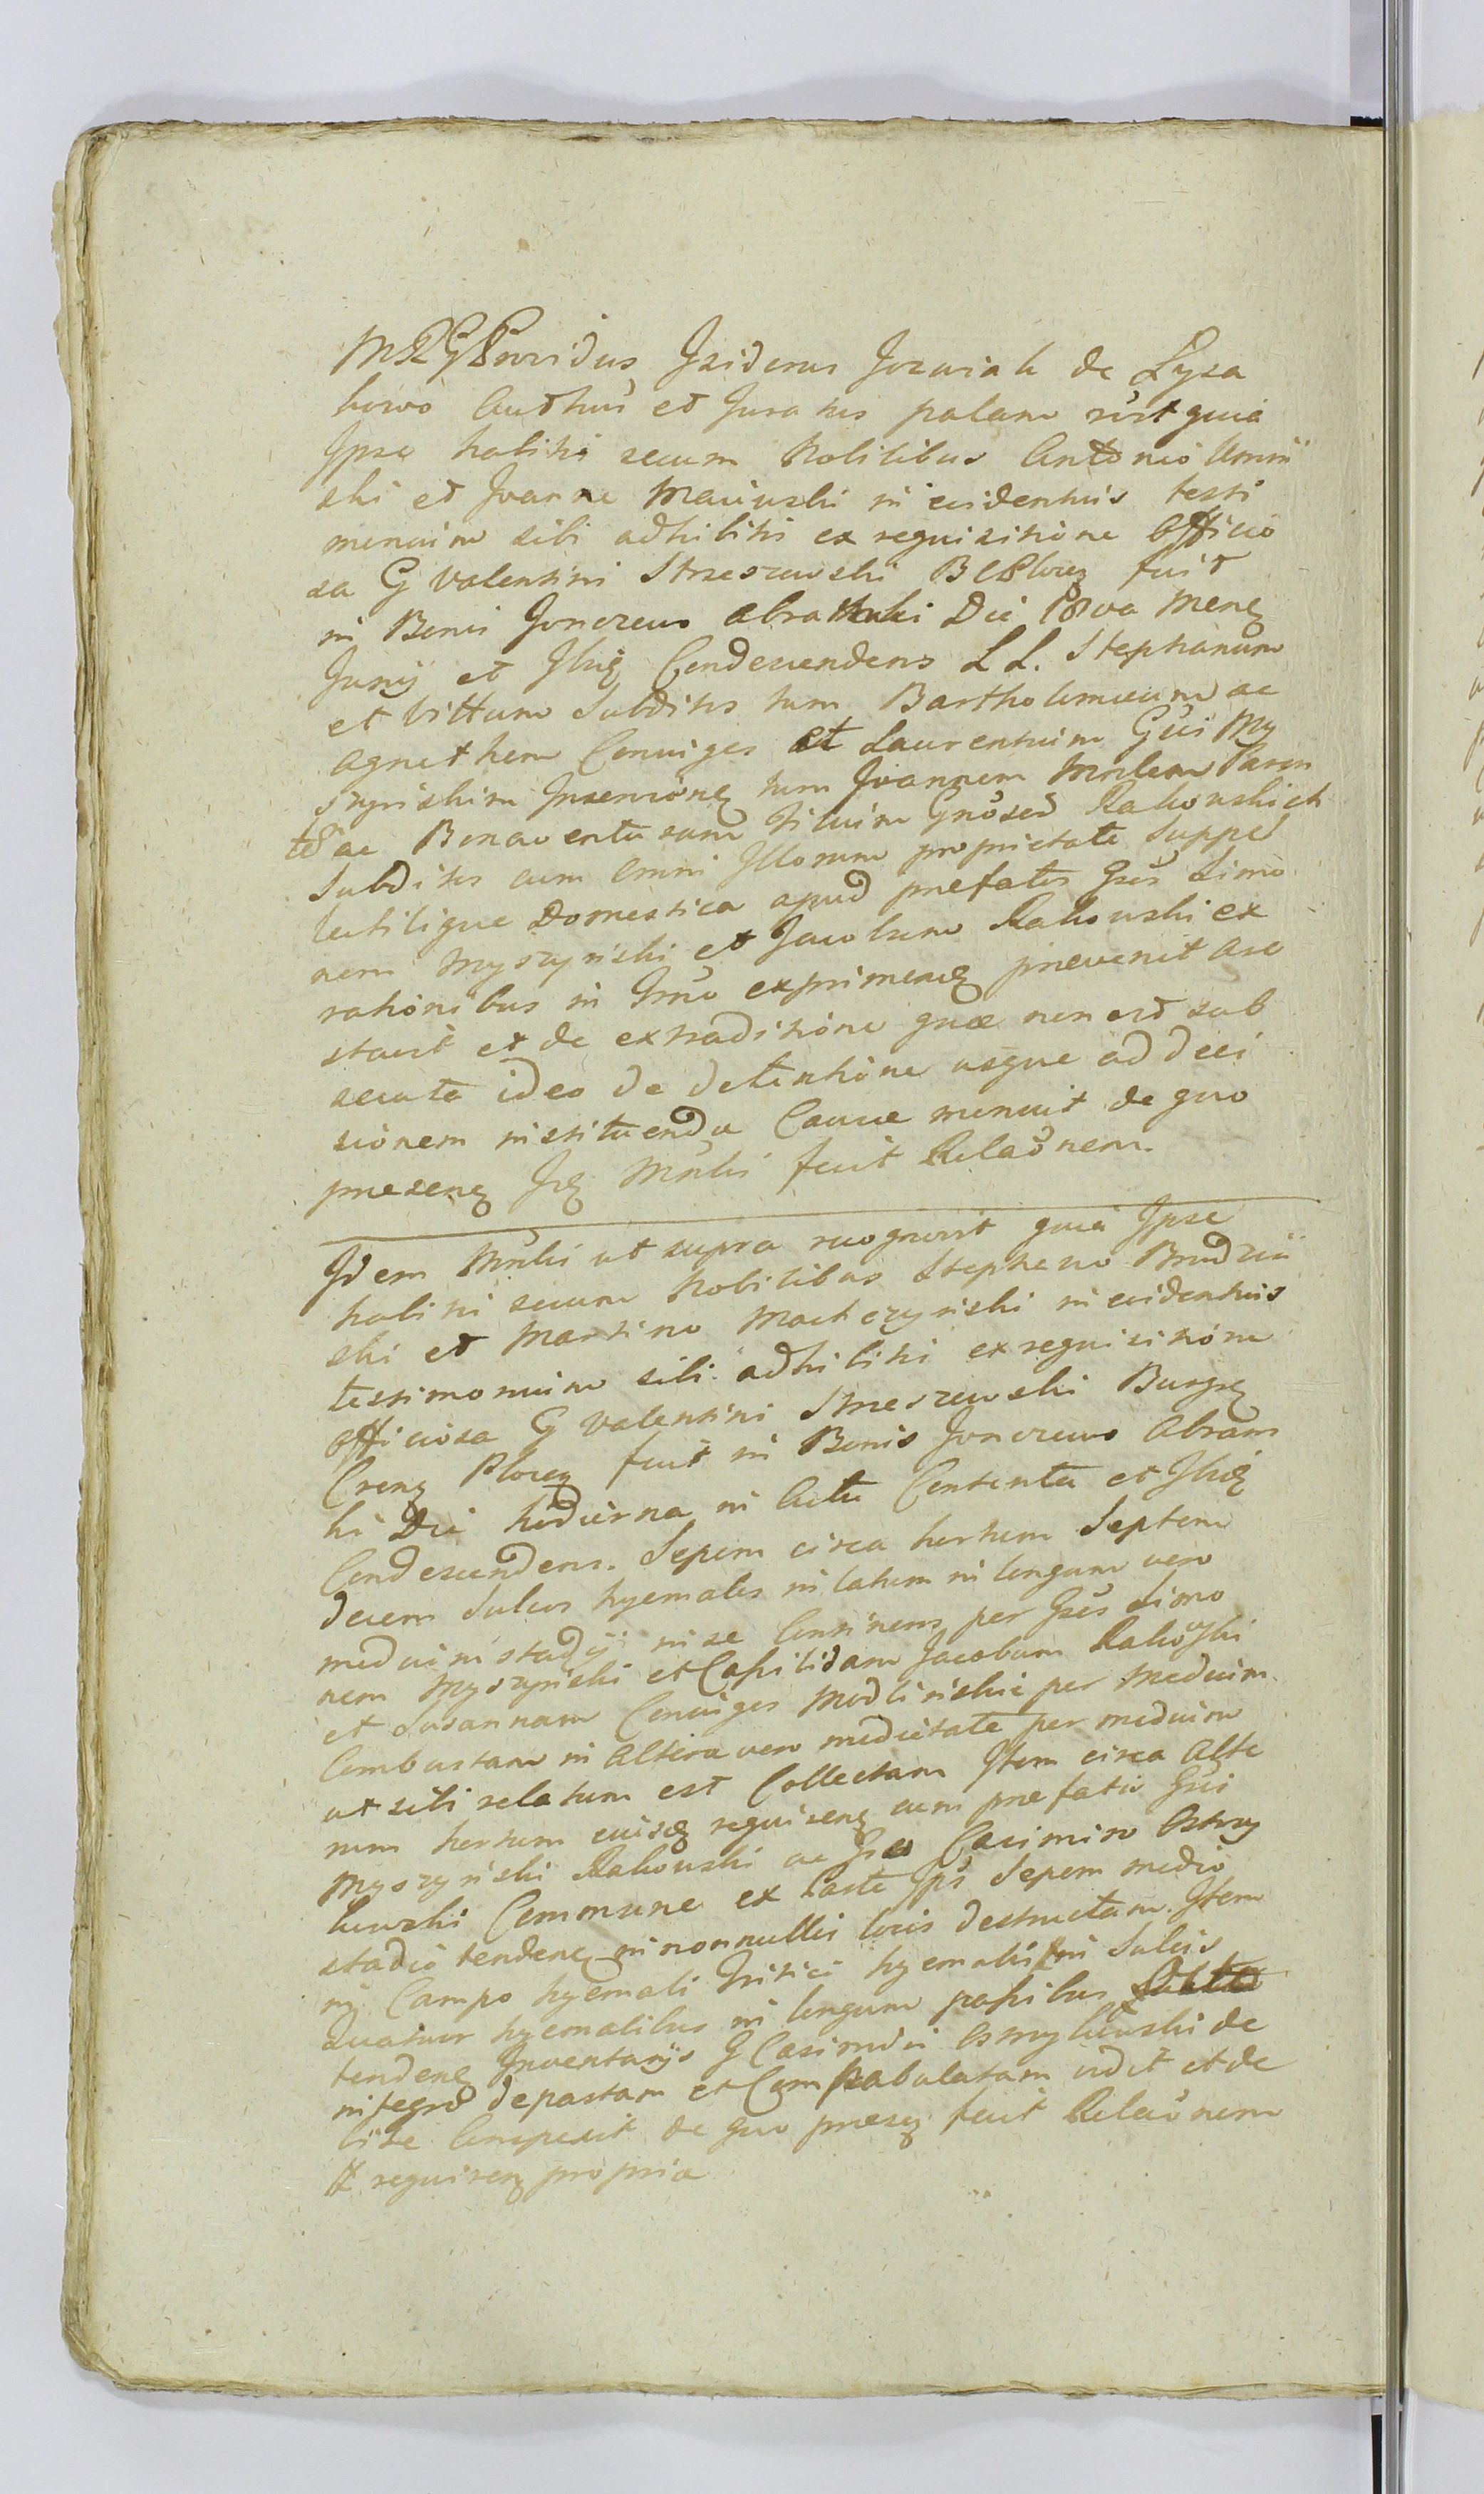 MRG Providus Isiderus Jozwiak de Łysa
kowo Authus et Juratus palam rūst quia
Ipse habitis secum Nobilibus Antonio Umiń
ski et Joanne Maciuski in evidentius testi
monium sibi adhibitis ex requisitione Officio
sa G Valentini Strzeszewski B C Plocen fuit
in Bonis Gonczewo Abra Die 18va Mens
Junij et Ibiq Condescendens L L. Stephanum
et Vittum Subditos tum Bartholomeum ac
Agnethem Conjuges et Laurentium Gūi My
szyńskim tum Joannem
ac Bonaventuram Filium Gnōsed Rakowskich
Subditos cum Omni Illorum proprietate Suppel
lectilique Domestica apud prefatos Gsōs Simo
nem Myszyński et Jacobum Rakowski ex
rationibus in Trno exprimend prevenit are
stavit et de extraditione quæ non est sub
secuta ideo de detentione usque ad deci
sionem instituenda Causæ monuit de quo
presens Jq Mnlis fecit Relaōnem.
Idem Mnlis ut supra recognovit quia Ipse
habitis secum Nobilibus Stephano Brudziń
ski et Martino Mach czyński in evidentius
testimonium sibi adhibitis ex requisitione
Officiosa G Valentini Strzeszewski Burgr
Crens Plocen fuit in Bonis Gonczewo Abram
ki Die hodierna in Actu Contenta et Ibidē
Condescendens. Sepem circa hortum Septem
decem Sulcos hyemales in latum in longum vero
medium stadij in se Continens per Gsōs Simo
nem Myszyński et Jacobum Rakowski
et Susannam Conjuges Modlińskie per Medium
Combustam in Altera vero medietate per medium
ut sibi relatum est Collectam Item circa Alte
rum hortum eiusd requirens cum prefatis Gsi
Myszyński Rakowski ac Gso Casimiro Osmy
łuwski Commune ex Parte Ips Sepem medio
stadio tendens in nonnullis locis destructam. Item
in Campo hyemali Tritici hyemalis in Sulcis
Quatuor hyemalibus in longum
tendens Inventarijs G Casimiri Osmylowski de
integro depastam et Compabulatam vidit et de
bite Conspexit de quo presens fecit Relaōnem
et requirens propria